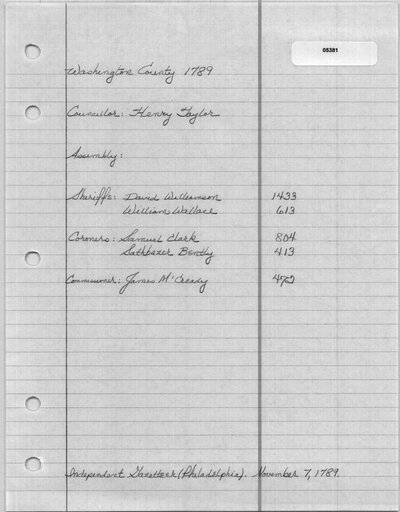 05381
Washington County 1789
Councillor: Henry Taylor
Assembly:
Sheriffs: David Williamson 1433
William Wallace 613
Coroners: Samuel Clark 804
Bently 413
Commissioner: James McCready
Independent Gazetteer (Philadelphia). November 7, 1789.